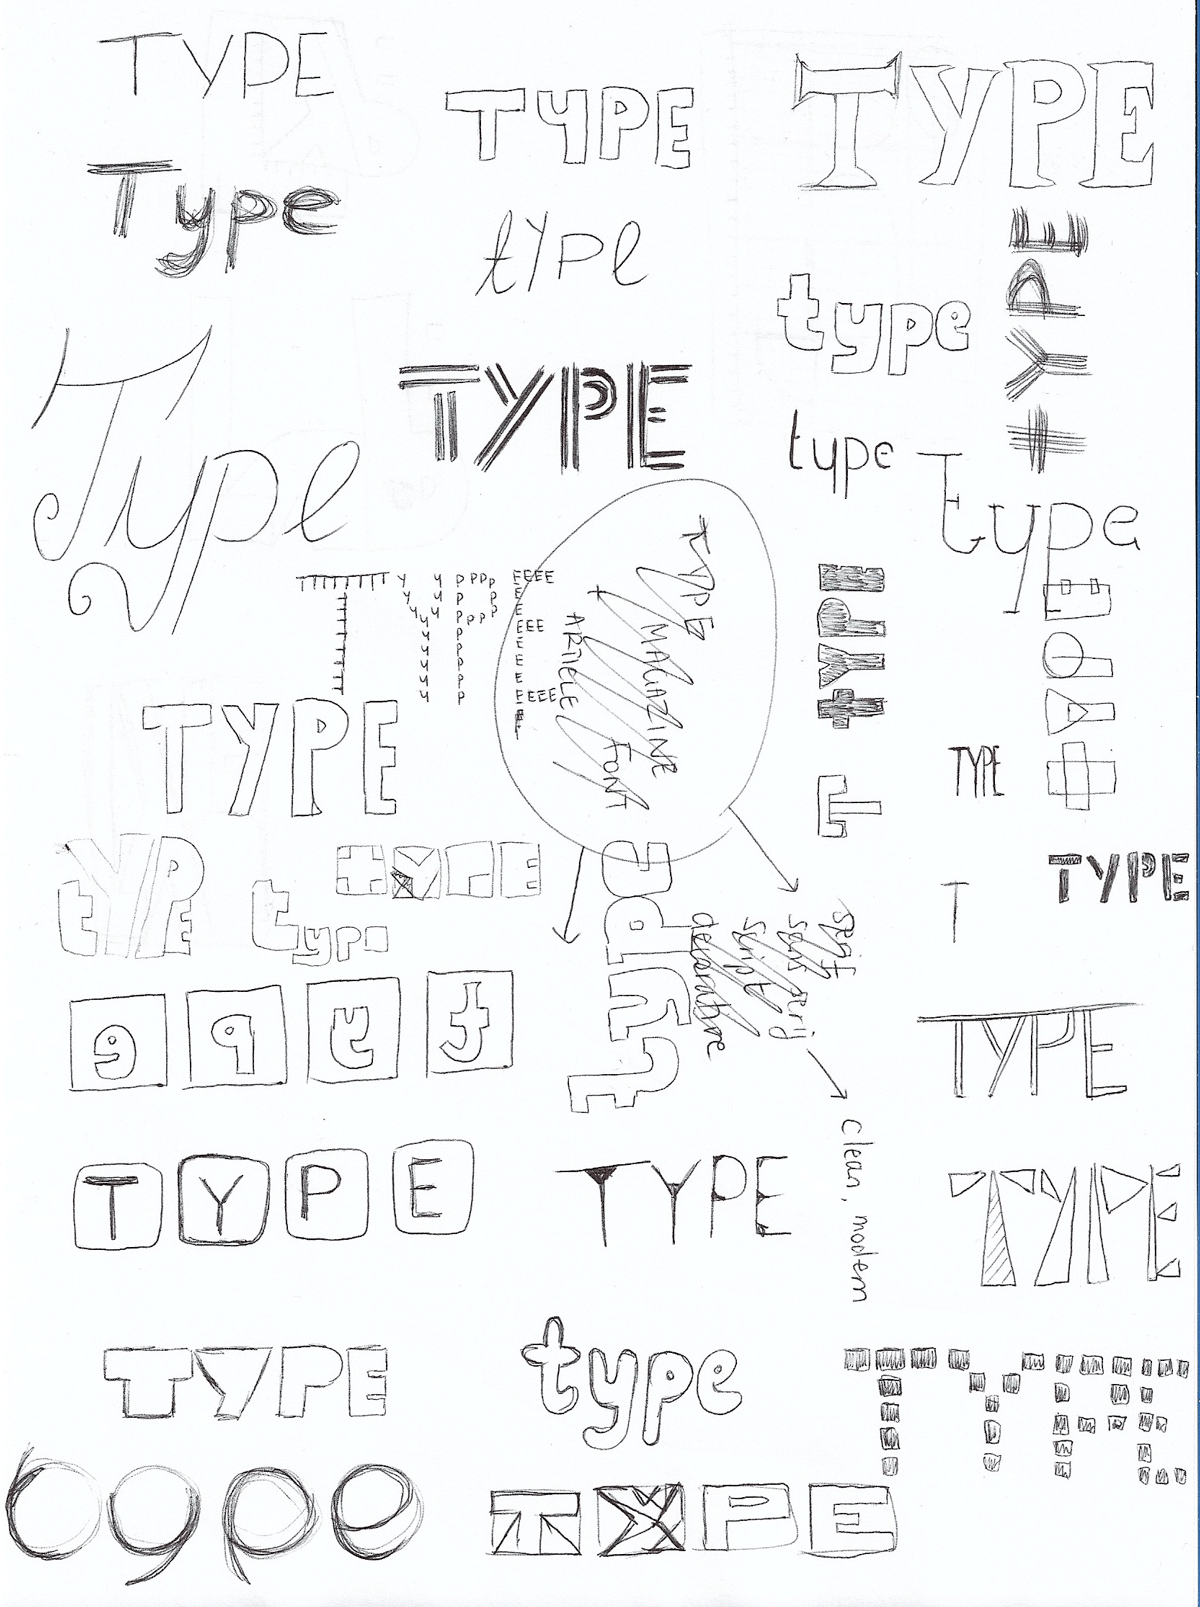 TYPE
TYPE
TYPE
Type
type
TYPE
type
Type
TYPE
type
type
TYPE
TYPE
MAGAZINE
ARTICLE
FONT
TYPE
TYPE
T
TYPE
TYPE
TYPE
TYPE
type
TYPE
type
TYPE
T
serif
sans serif
script
decorative
clean, modern
e p y t
TYPE
T Y P E
TYPE
TYPE
TYPE
type
TYPE
type
TYPE